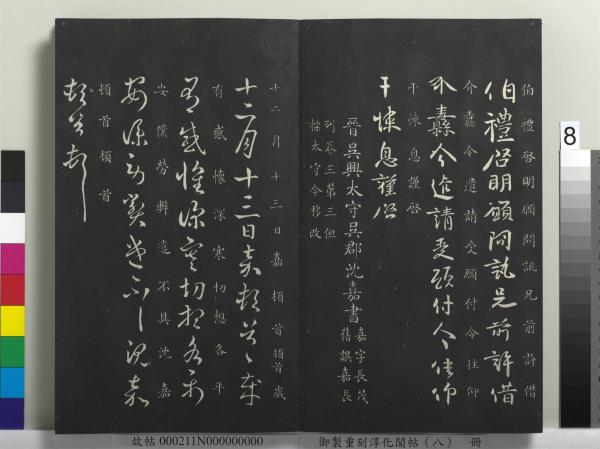 伯禮啓明願問訊兄前許借
伯禮啓明願問訊兄前許借
介嘉今遣請受願付令往仰
介嘉今遣請受願付令往仰
干悚息謹啓
干悚息謹啓
晉吳興太守吳郡沈嘉書
嘉字長茂
舊誤嘉長
列卷三第三但
標太守今移改
十二月十三日嘉頓首頓首歲
十二月十三日嘉頓首〻歲
有感懷深寒切想各平
有感懷深寒切想各平
安僕勞弊遣不具沈嘉
安僕勞弊遣不具沈嘉
頓首頓首
頓首頓首
8
故帖 000211N000000000
御製重刻淳化閣帖（八） 冊